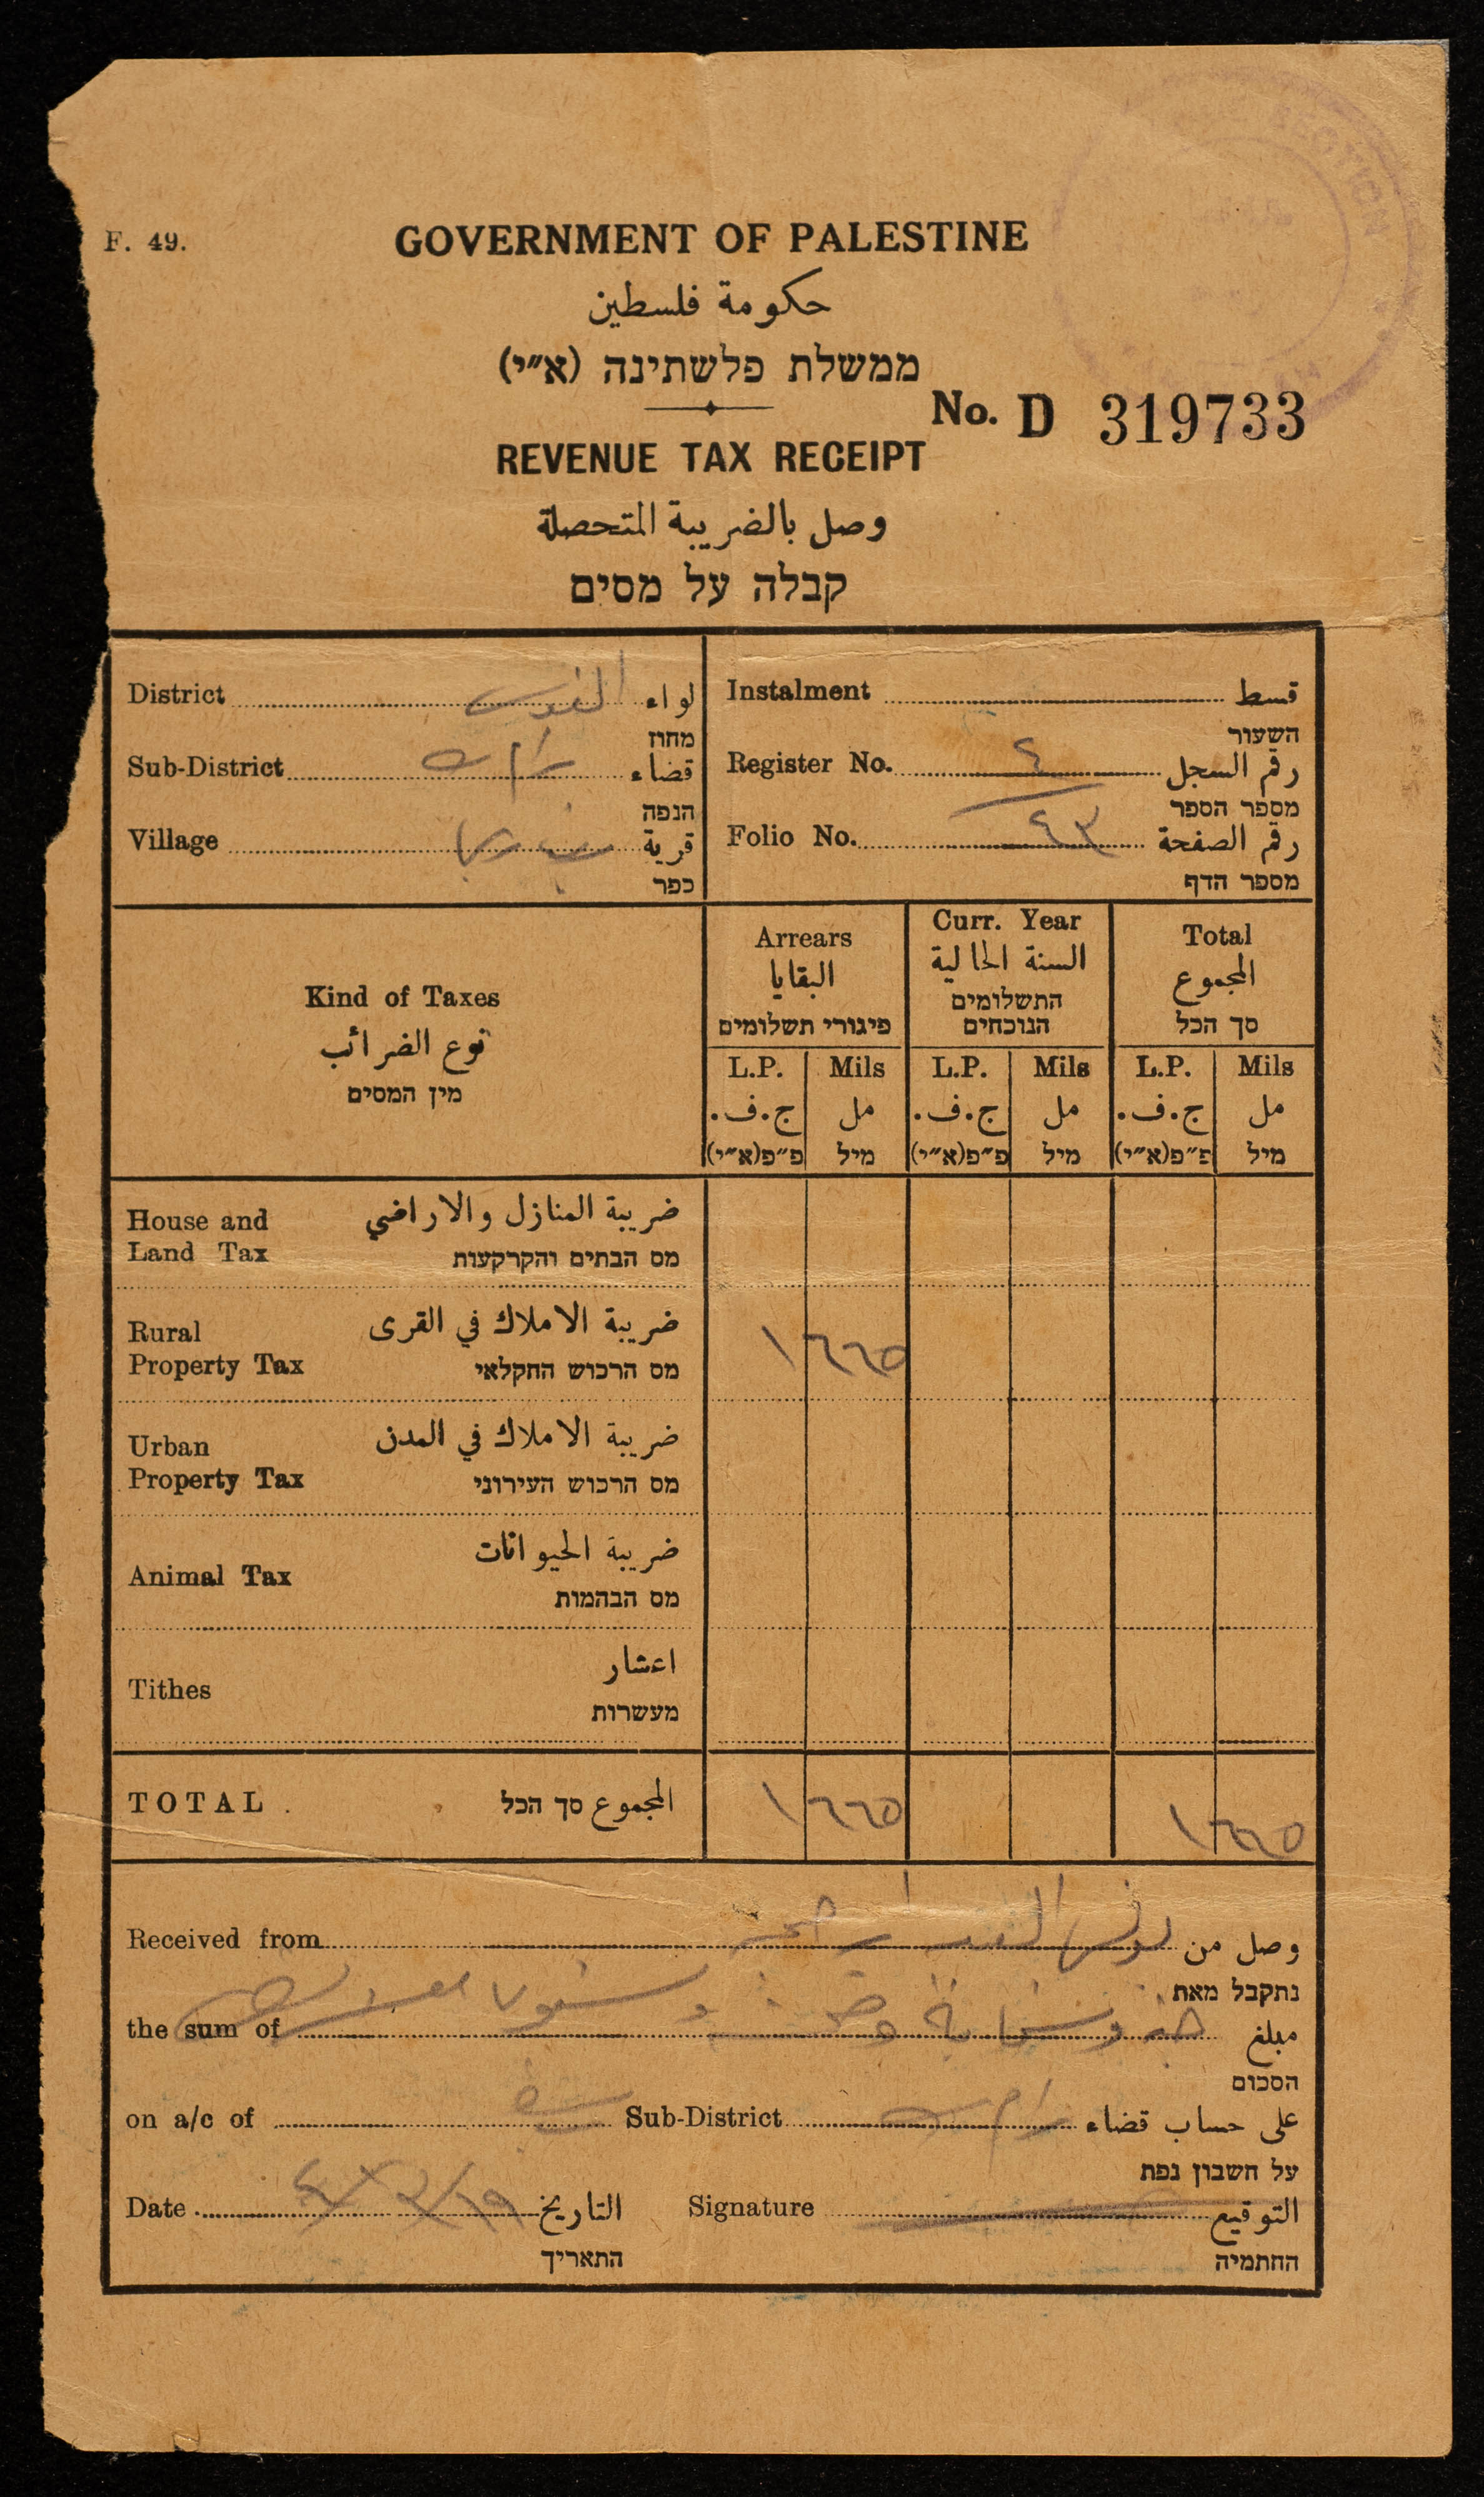 F. 49.
GOVERNMENT OF PALESTINE
حكومة فلسطين
ממשלת פלשתינה (א״י)
No. D 319733
REVENUE TAX RECEIPT
وصل بالضريبة المتحصلة
קבלה על מסים
District القدس لواء
מחוז
Sub-District قضاء
הנפה
Village قرية
כפר
Instalment قسط
השעור
Register No. ٤ رقم السجل
מספר הספר
Folio No. ٤٣ رقم الصفحة
מספר הדף
Kind of Taxes
نوع الضرائب
מין המסים
Arrears
البقايا
פיגורי תשלומים
Curr. Year
السنة الحالية
התשלומים
הנוכחים
Total
المجموع
סך הכל
L.P. Mils L.P. Mils L.P. Mils
ج.ف. مل ج.ف. مل ج.ف. مل
פ״פ(א״י) מיל פ״פ(א״י) מיל פ״פ(א״י) מיל
House and ضريبة المنازل والاراضي
Land Tax מס הבתים והקרקעות
Rural ضريبة الاملاك في القرى
Property Tax מס הרכוש החקלאי
١ ٦٦٥
Urban ضريبة الاملاك في المدن
Property Tax מס הרכוש העירוני
Animal Tax ضريبة الحيوانات
מס הבהמות
Tithes اعشار
מעשרות
TOTAL المجموع סך הכל ١ ٦٦٥ ١ ٦٦٥
Received from وصل من
נתקבל מאת
the sum of مبلغ
הסכום
on a/c of Sub-District على حساب قضاء
על חשבון נפת
Date التاريخ Signature التوقيع
התאריך החתמיה
SECTION